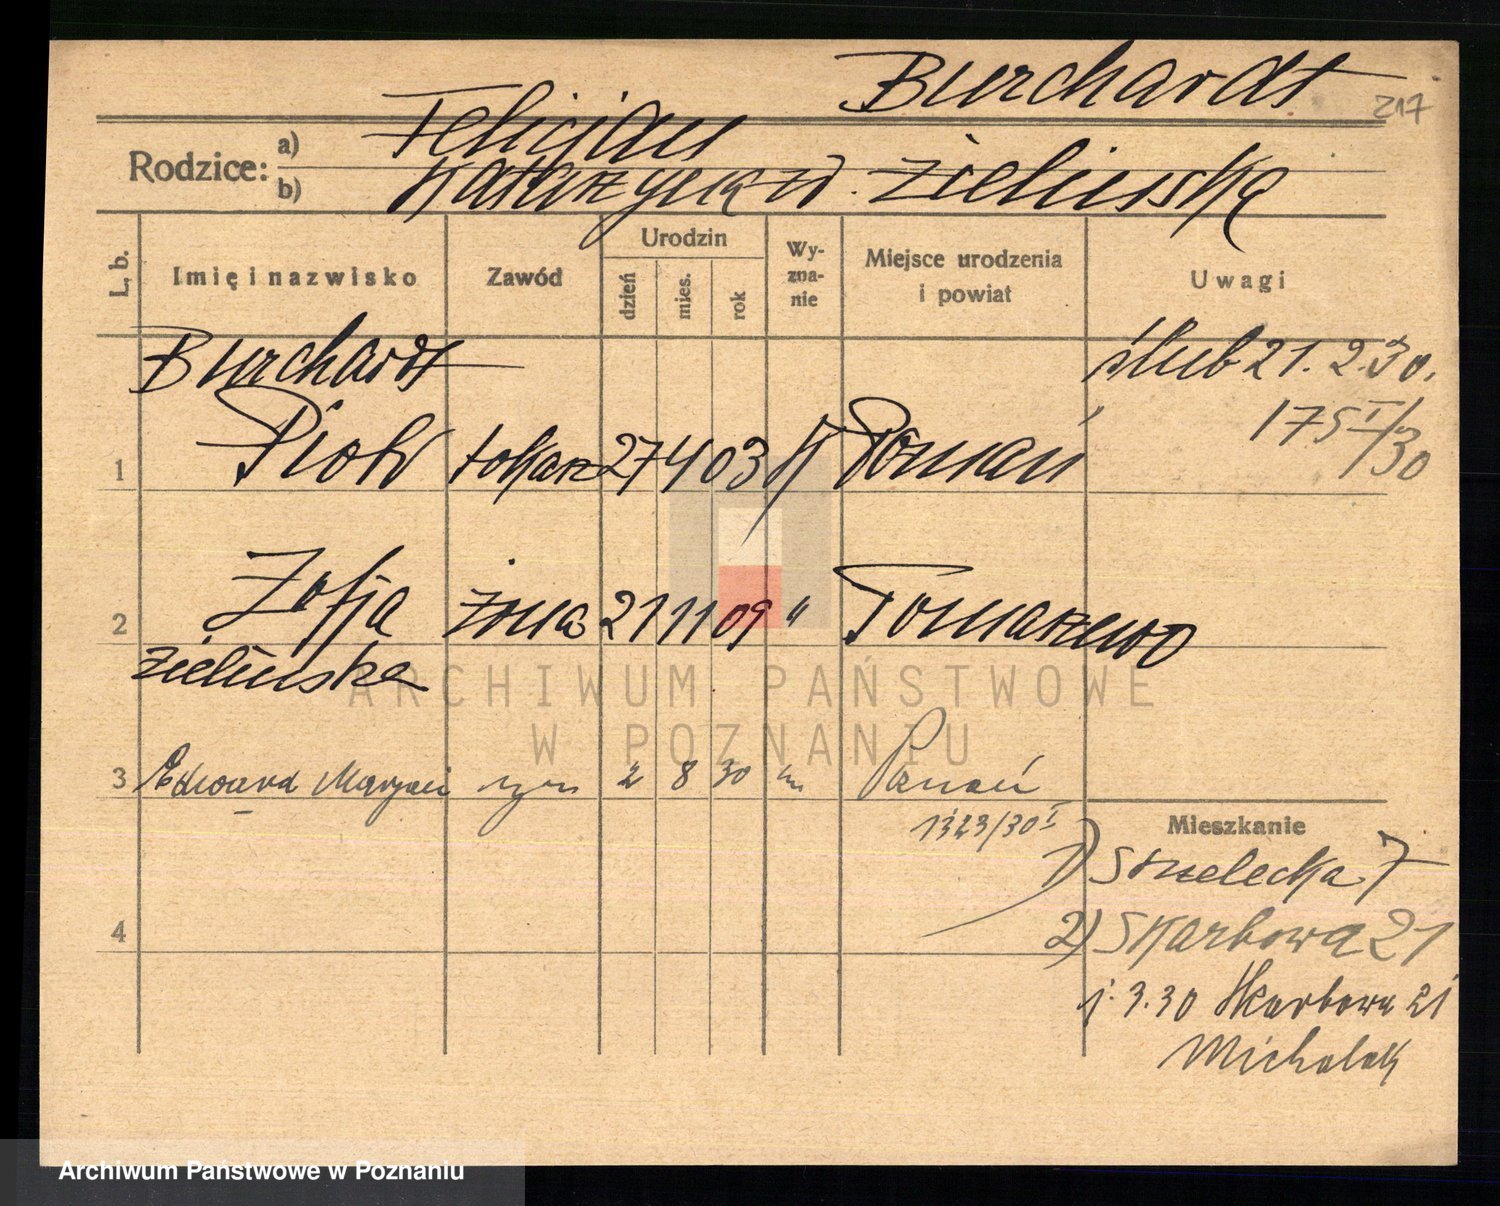 Burchardt
217
Rodzice: a) Felicjan
b) Katarzyna z d. Zielińska
L. b. Imię i nazwisko Zawód Urodzin dzień mies. rok Wy-zna-nie Miejsce urodzenia i powiat Uwagi
Burchardt ślub 21. 2. 30.
175 I/30
1 Piotr tokarz 27 4 03 K Poznań
2 Zofja żona 21 11 09 " Tomaszewo
Zielińska
ARCHIWUM PAŃSTWOWE
W POZNANIU
3 Edward Maryan syn 2 8 30 Poznań
1323/30 I
Mieszkanie
1) Strzelecka 7
4
2) Skarbowa 21
3.30 Skarbowa 21
Michalak
Archiwum Państwowe w Poznaniu